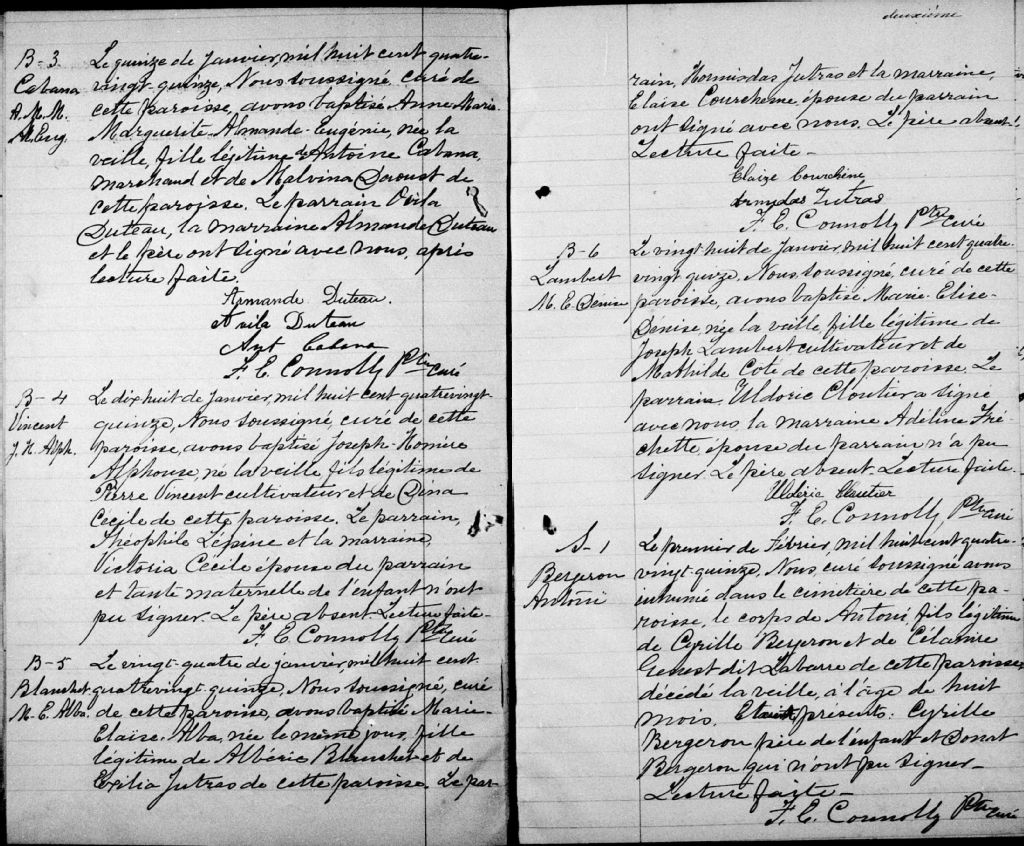 B-3.
Cabana
A. M. M.
Al. Eug.
Le quinze de janvier, mil huit cent quatre-
vingt-quinze, Nous soussigné, curé de
cette paroisse, avons baptisé Anne-Marie-
Marguerite-Almande-Eugénie, née la
veille, fille légitime d'Antoine Cabana,
marchand et de Malvina Doroust de
cette paroisse. Le parrain Ovila
Duteau, la marraine Almande Duteau
et le père ont signé avec nous, après
lecture faite.
Armande Duteau.
Avila Duteau
Ant Cabana
F. E. Connolly Ptre curé
B-4
Vincent
J. H. Alph.
Le dix huit de janvier, mil huit cent quatrevingt-
quinze, Nous soussigné, curé de cette
paroisse, avons baptisé Joseph-Homère
Alphonse, né la veille, fils légitime de
Pierre Vincent cultivateur et de Dina
Cecile de cette paroisse. Le parrain,
Théophile Lépine et la marraine,
Victoria Cecile épouse du parrain
et tante maternelle de l'enfant n'ont
pu signer. Le père absent. Lecture faite-
F. E. Connolly Ptre curé
B-5
Blanchet
M. E. Alba.
Le vingt-quatre de janvier, mil huit cent
quatrevingt-quinze, Nous soussigné, curé
de cette paroisse, avons baptisé Marie-
Elaise-Alba, née le même jour, fille
légitime de Albéric Blanchet et de
Exilia Jutras de cette paroisse. Le par-
deuxième
rain, Homisdas Jutras et la marraine,
Elaise Courchene, épouse du parrain
ont signé avec nous. Le père absent.
Lecture faite-
Elaize Courchène
Armydas Jutras
F. E. Connolly Ptre curé
B-6
Lambert
M. E. Dénise
Le vingt huit de janvier, mil huit cent quatre-
vingt quize, Nous soussigné, curé de cette
paroisse, avons baptisé Marie-Elise-
Dénise, née la veille, fille légitime de
Joseph Lambert cultivateur et de
Mathilde Coté de cette paroisse. Le
parrain Uldoric Cloutier a signé
avec nous, la marraine Adéline Fré-
chette, épouse du parrain n'a pu
signer. Le père absent. Lecture faite.
Uldéric Cloutier
F. E. Connolly, Ptre curé
S-1
Bergeron
Antoni
Le premier de Février, mil huit cent quatre-
vingt-quinze, Nous curé soussigné avons
inhumé dans le cimetière de cette pa-
roisse, le corps de Antoni, fils légitime
de Cyrille Bergeron et de Célamire
Genest dit Labarre de cette paroisse,
décédé la veille, à l'âge de huit
mois. Etaient présents: Cyrille
Bergeron père de l'enfant et Donat
Bergeron qui n'ont pu signer-
Lecture faite-
F. E. Connolly Ptre curé